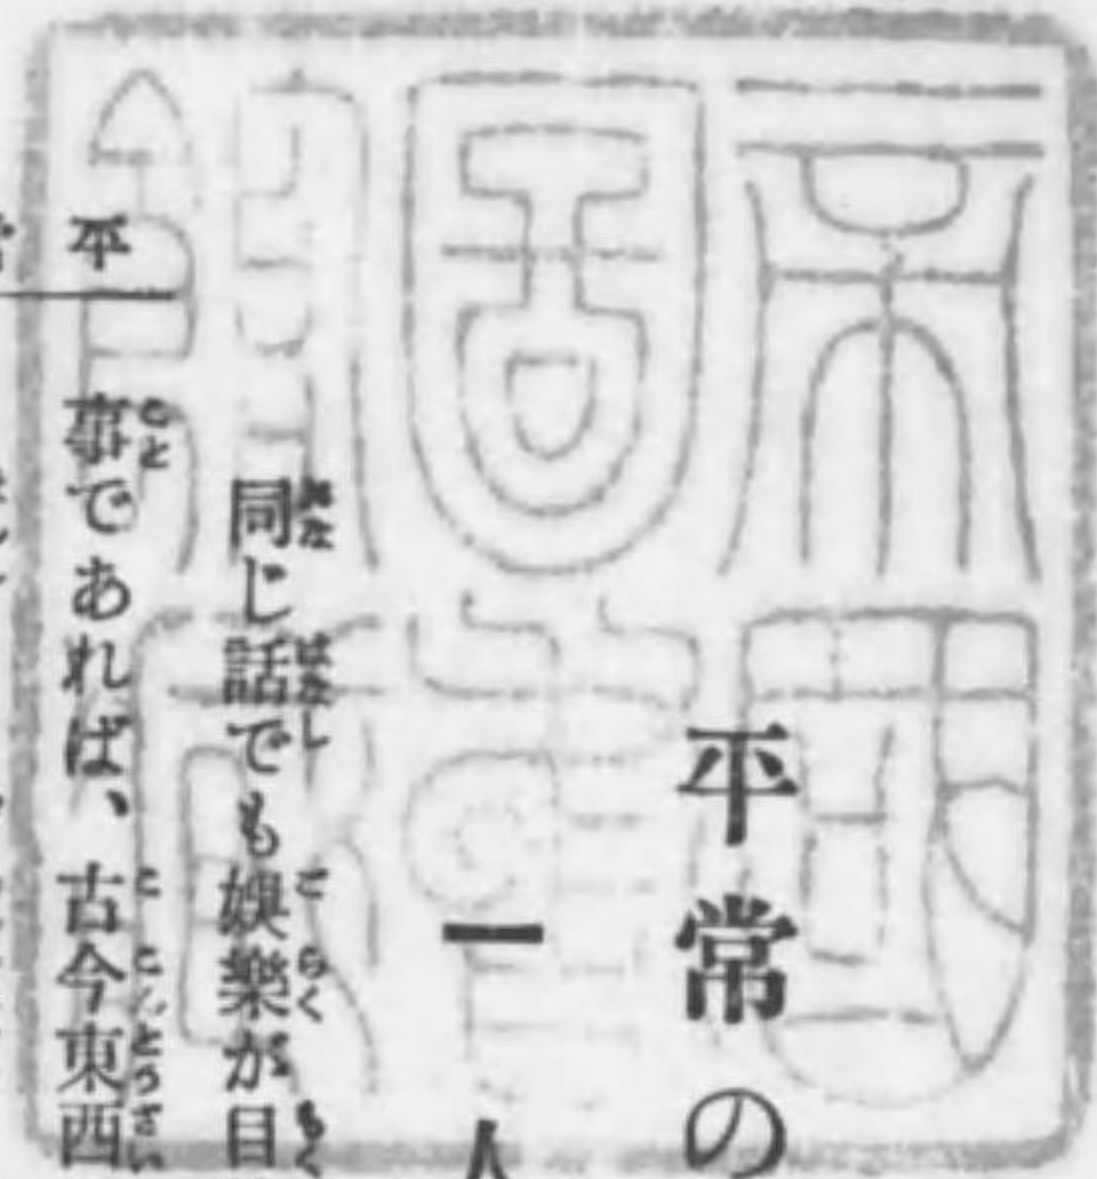 帝國
圖書
館藏
平常の
一 人
同じ話でも娯樂が目
事であれば、古今東西
平